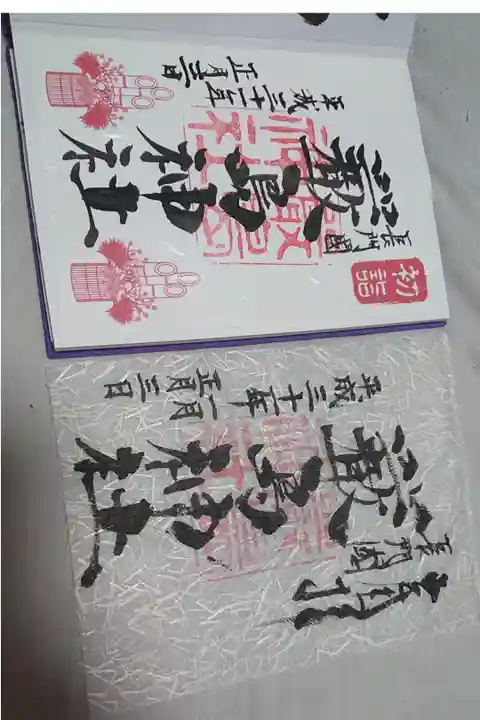 初詣
長門國
嚴島神社
平成三十一年
正月三日
奉拝
長門國
嚴島神社
平成三十一年
正月三日